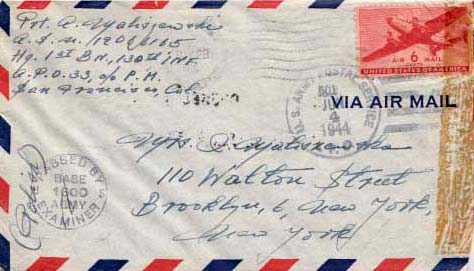 Pvt. A. Nyaliszewski
A.S.N. 12066165
Hq. 1st BN., 130th INF.
A.P.O. 33, c/o P.M.
San Francisco, Cal.
6
AIR MAIL
CENTS
UNITED STATES OF AMERICA
VIA AIR MAIL
U.S. ARMY POSTAL SERVICE
4
1944
PASSED BY
BASE
1600
ARMY
EXAMINER
110 Walton Street
Brooklyn, 6, New York,
New York